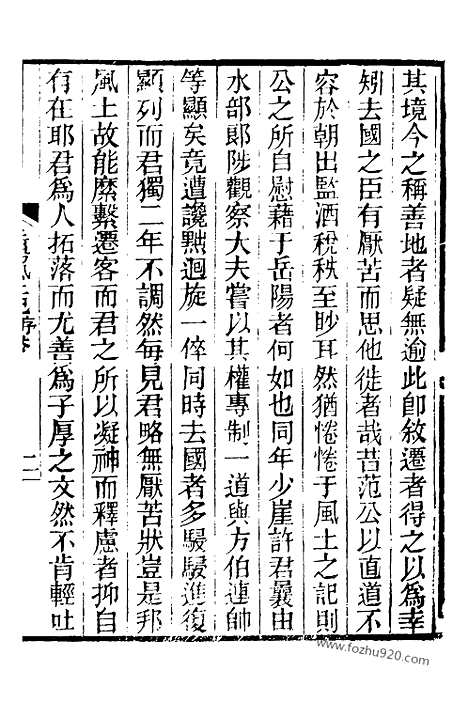 其境今之稱善地者疑無逾此卽敘遷者得之以爲幸
矧去國之臣有厭苦而思他徙者哉昔范公以直道不
容於朝出監酒稅秩至眇耳然猶惓惓于風土之記則
公之所自慰藉于岳陽者何如也同年少崖許君曩由
水部郎陟觀察大夫嘗以其權專制一道與方伯連帥
等顯矣竟遭讒黜迴旋一倅同時去國者多駸駸進復
顯列而君獨二年不調然每見君略無厭苦狀豈是邦
風土故能縻繫遷客而君之所以凝神而釋慮者抑自
有在耶君爲人拓落而尤善爲子厚之文然不肯輕吐
二
www.fozhu920.com